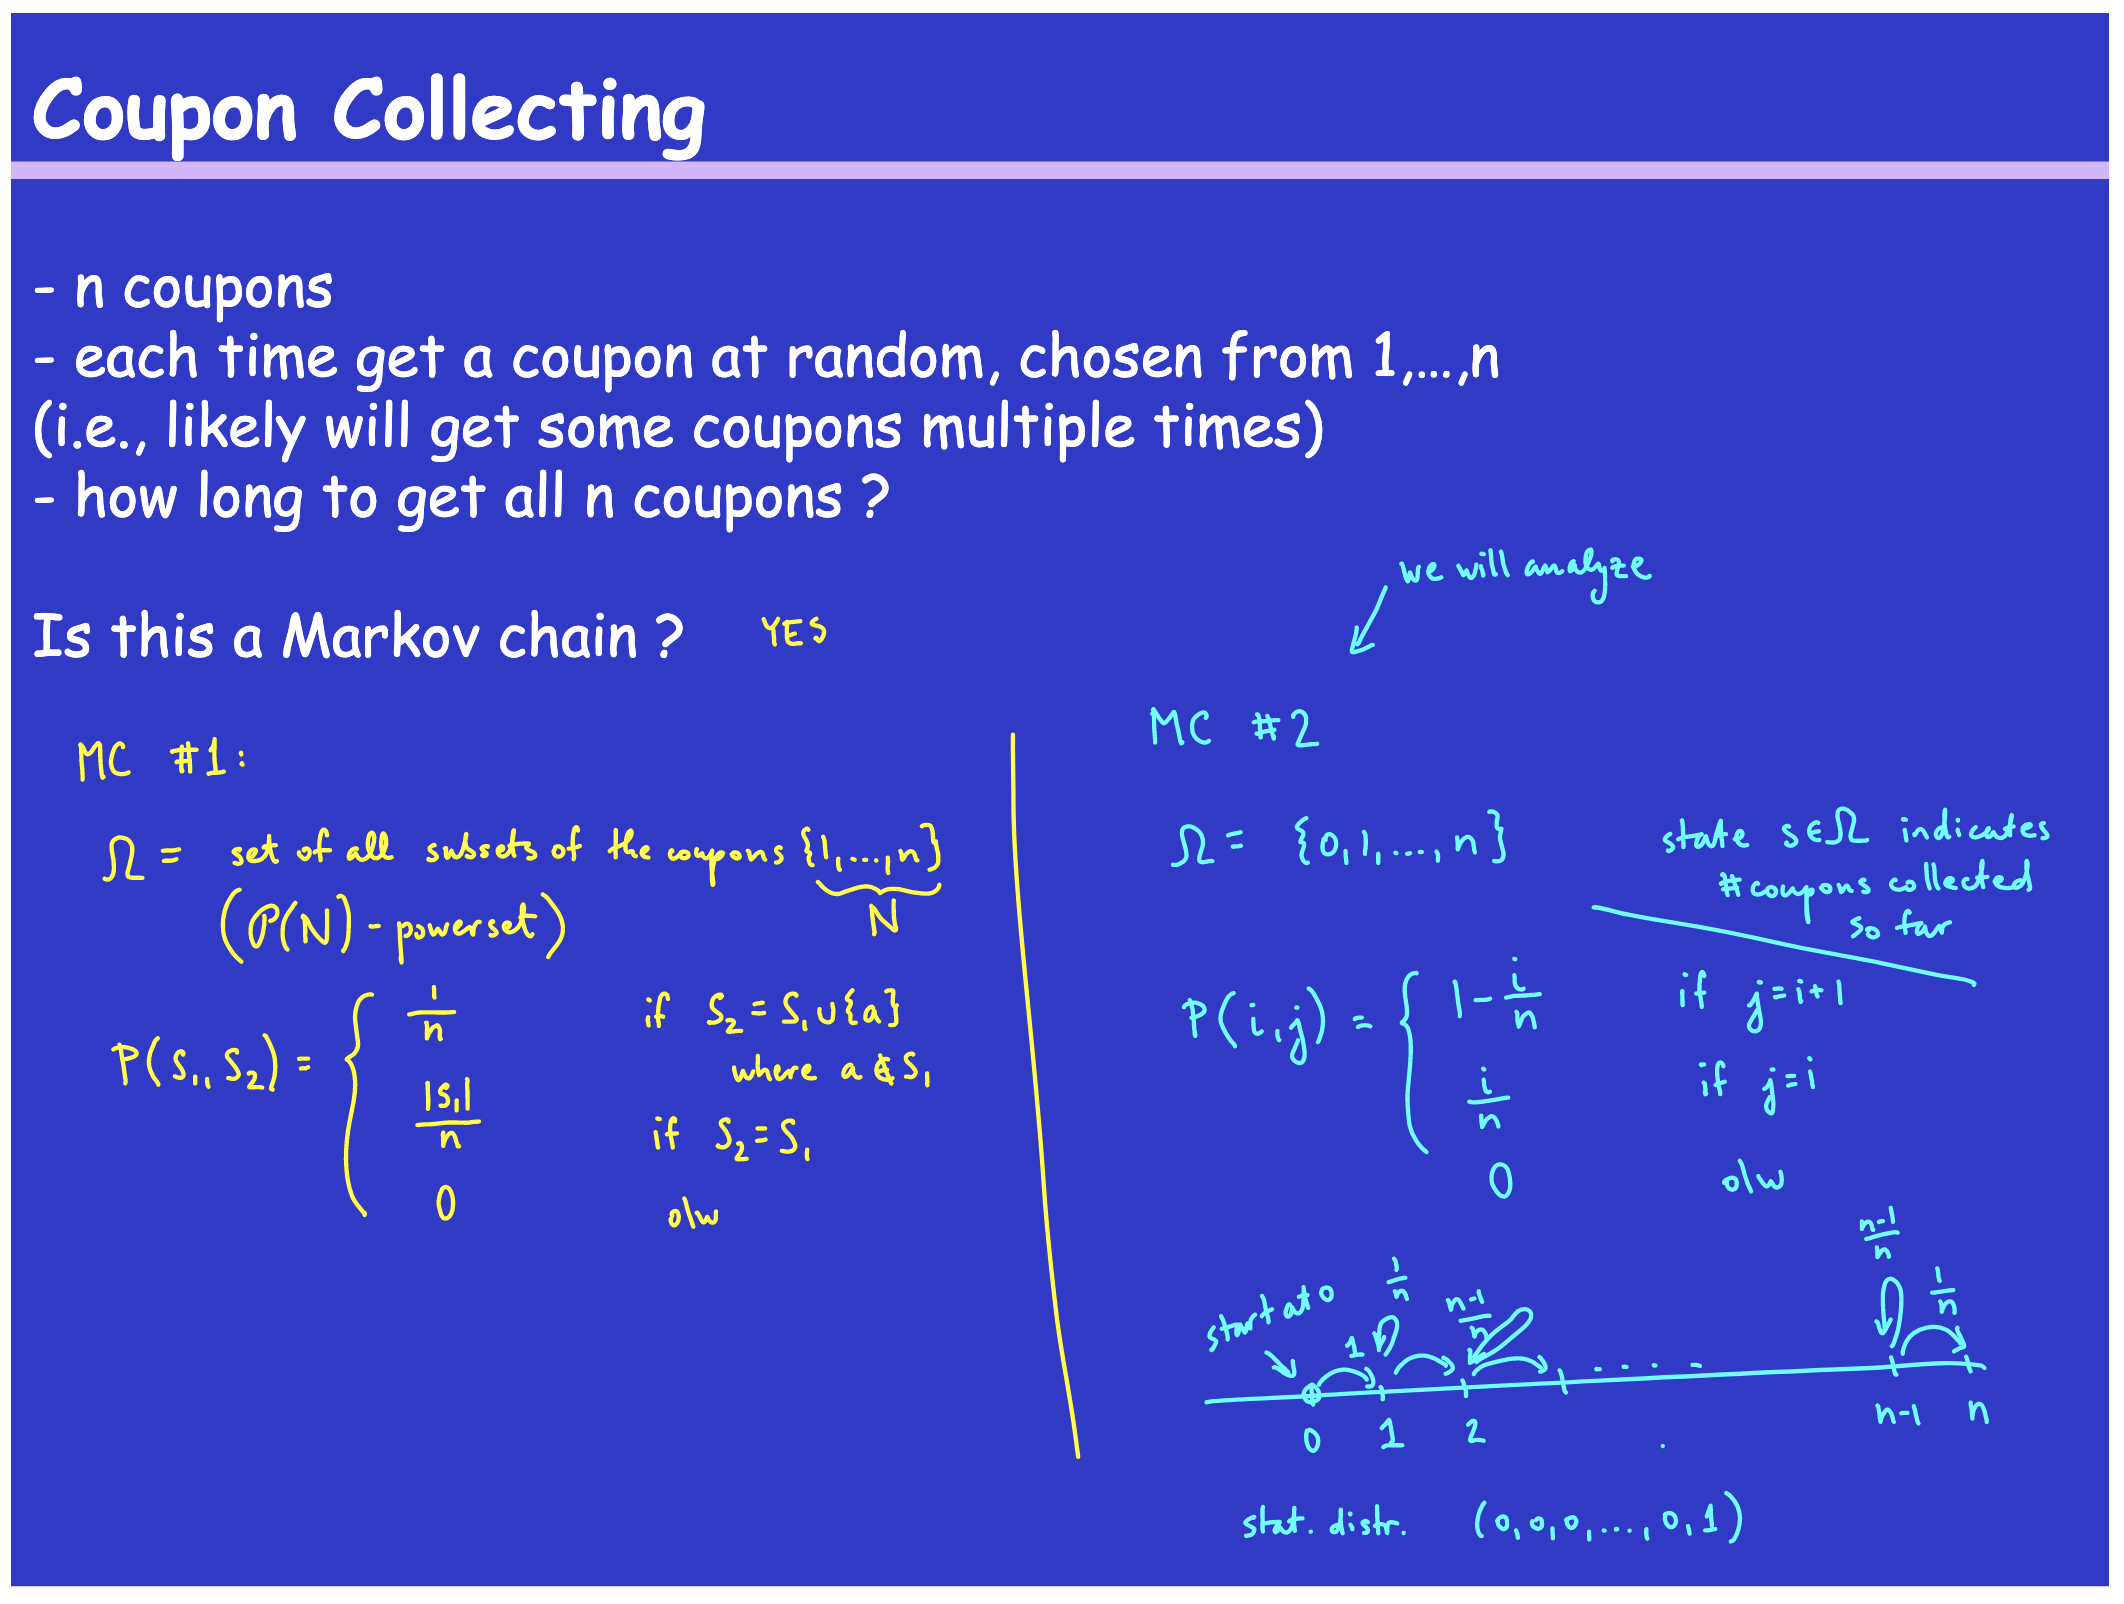 Coupon Collecting
- n coupons
- each time get a coupon at random, chosen from 1,...,n
(i.e., likely will get some coupons multiple times)
- how long to get all n coupons ?
we will analyze
Is this a Markov chain ? YES
MC #1:
Ω = set of all subsets of the coupons {1,...,n}
N
(P(N) - powerset)
P(S₁, S₂) = {
1/n if S₂ = S₁ ∪ {a}
where a ∉ S₁
|S₁|/n if S₂ = S₁
0 o/w
MC #2
Ω = {0,1,...,n}
state s∈Ω indicates
# coupons collected
so far
P(i,j) = {
1 - i/n if j = i+1
i/n if j = i
0 o/w
start at 0
1 1/n n-1/n .... n-1/n 1/n
0 1 2 n-1 n
stat. distr. (0,0,0,...,0,1)